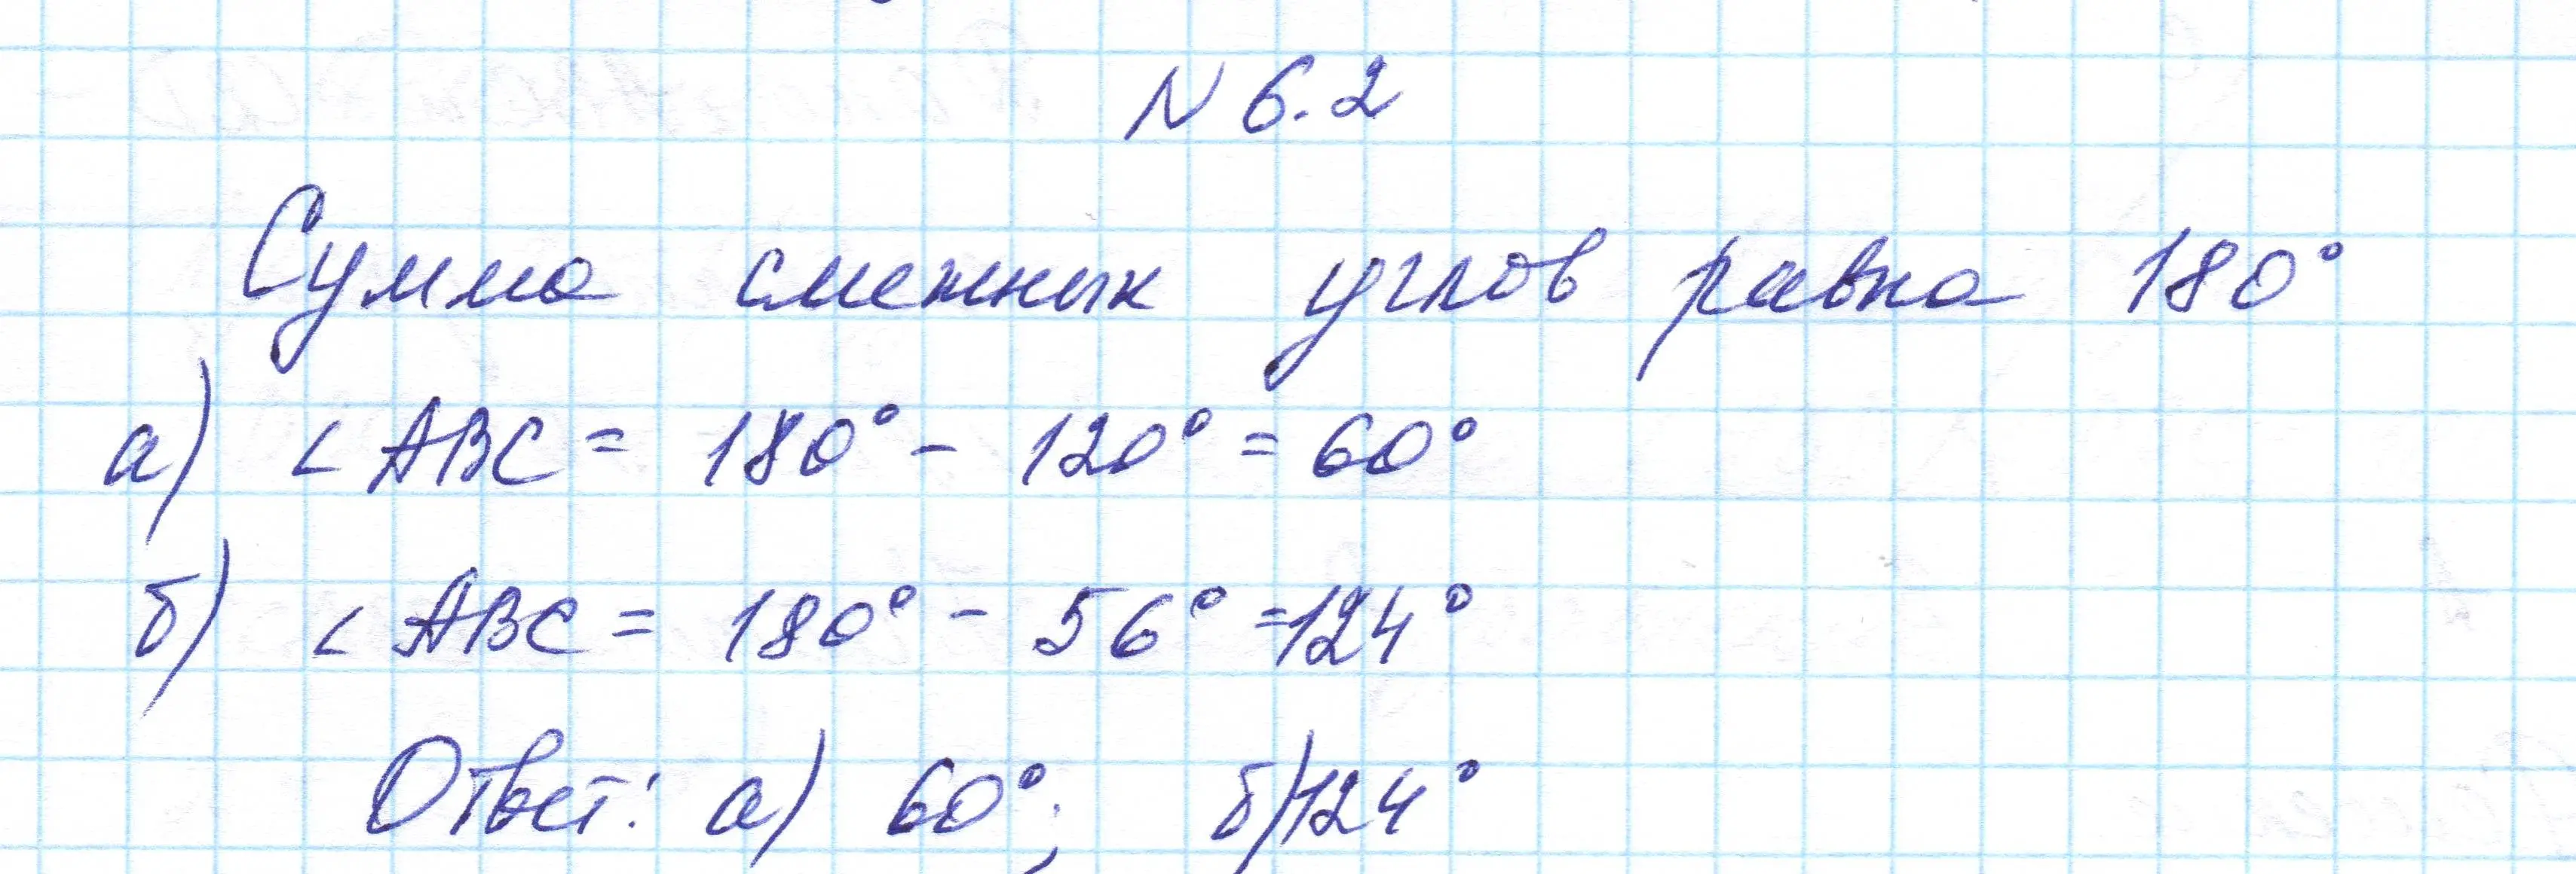 N 6.2
Сумма смежных углов равна 180°
а) ∠ ABC = 180° - 120° = 60°
б) ∠ ABC = 180° - 56° = 124°
Ответ: а) 60°; б) 124°